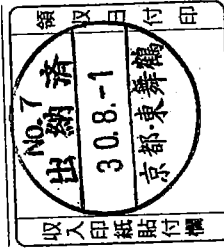 領収日付印
No. 7
出納済
30.8.-1
京都・東舞鶴
収入印紙貼付欄